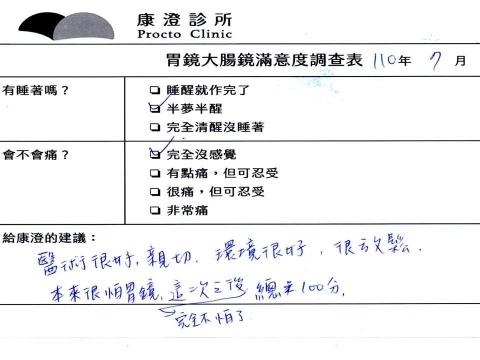 康澄診所
Procto Clinic
胃鏡大腸鏡滿意度調查表 110年 7月
有睡著嗎？
□ 睡醒就作完了
☑ 半夢半醒
□ 完全清醒沒睡著
會不會痛？
☑ 完全沒感覺
□ 有點痛，但可忍受
□ 很痛，但可忍受
□ 非常痛
給康澄的建議：
醫術很好，親切、環境很好，很放鬆.
本來很怕胃鏡，這次之後 總來100分，
完全不怕了